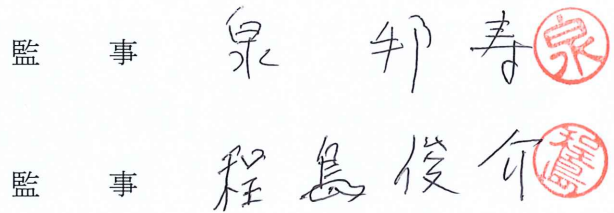 監事 泉 邦寿 泉
監事 程島俊介 程島